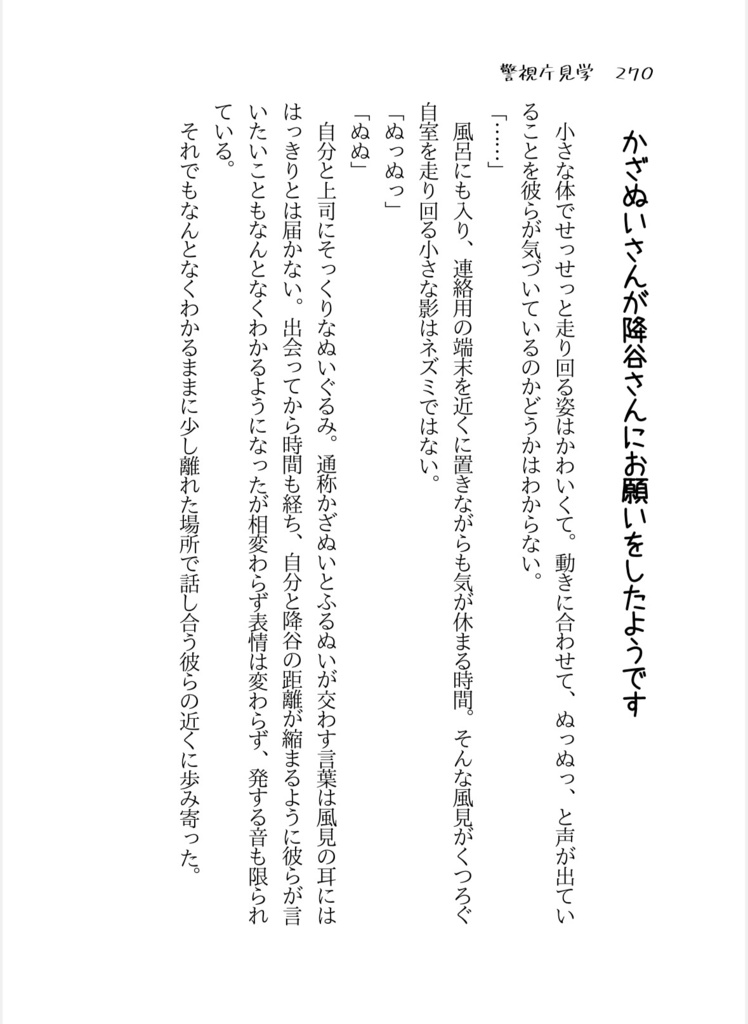 警視庁見学 270
かざぬいさんが降谷さんにお願いをしたようです
小さな体でせっせっと走り回る姿はかわいくて。動きに合わせて、ぬっぬっ、と声が出てい
ることを彼らが気づいているのかどうかはわからない。
「……」
風呂にも入り、連絡用の端末を近くに置きながらも気が休まる時間。そんな風見がくつろぐ
自室を走り回る小さな影はネズミではない。
「ぬっぬっ」
「ぬぬ」
自分と上司にそっくりなぬいぐるみ。通称かざぬいとふるぬいが交わす言葉は風見の耳には
はっきりとは届かない。出会ってから時間も経ち、自分と降谷の距離が縮まるように彼らが言
いたいこともなんとなくわかるようになったが相変わらず表情は変わらず、発する音も限られ
ている。
それでもなんとなくわかるままに少し離れた場所で話し合う彼らの近くに歩み寄った。